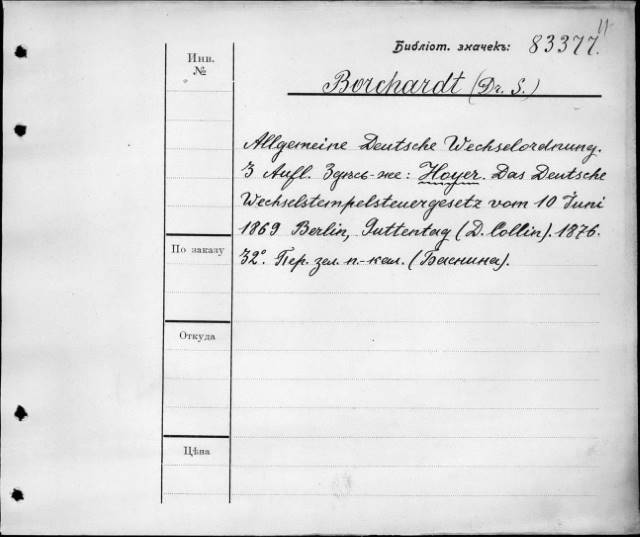 11
Библіот. значекъ: 83377.
Инв.
№
Borchardt (Dr. S.)
Allgemeine Deutsche Wechselordnung.
3 Aufl. Здѣсь-же: Hoyer. Das Deutsche
Wechselstempelsteuergesetz vom 10 Juni
1869 Berlin, Guttentag (D. Collin). 1876.
32°. Пер. зел. п.-кал. (Баснина).
По заказу
Откуда
Цѣна